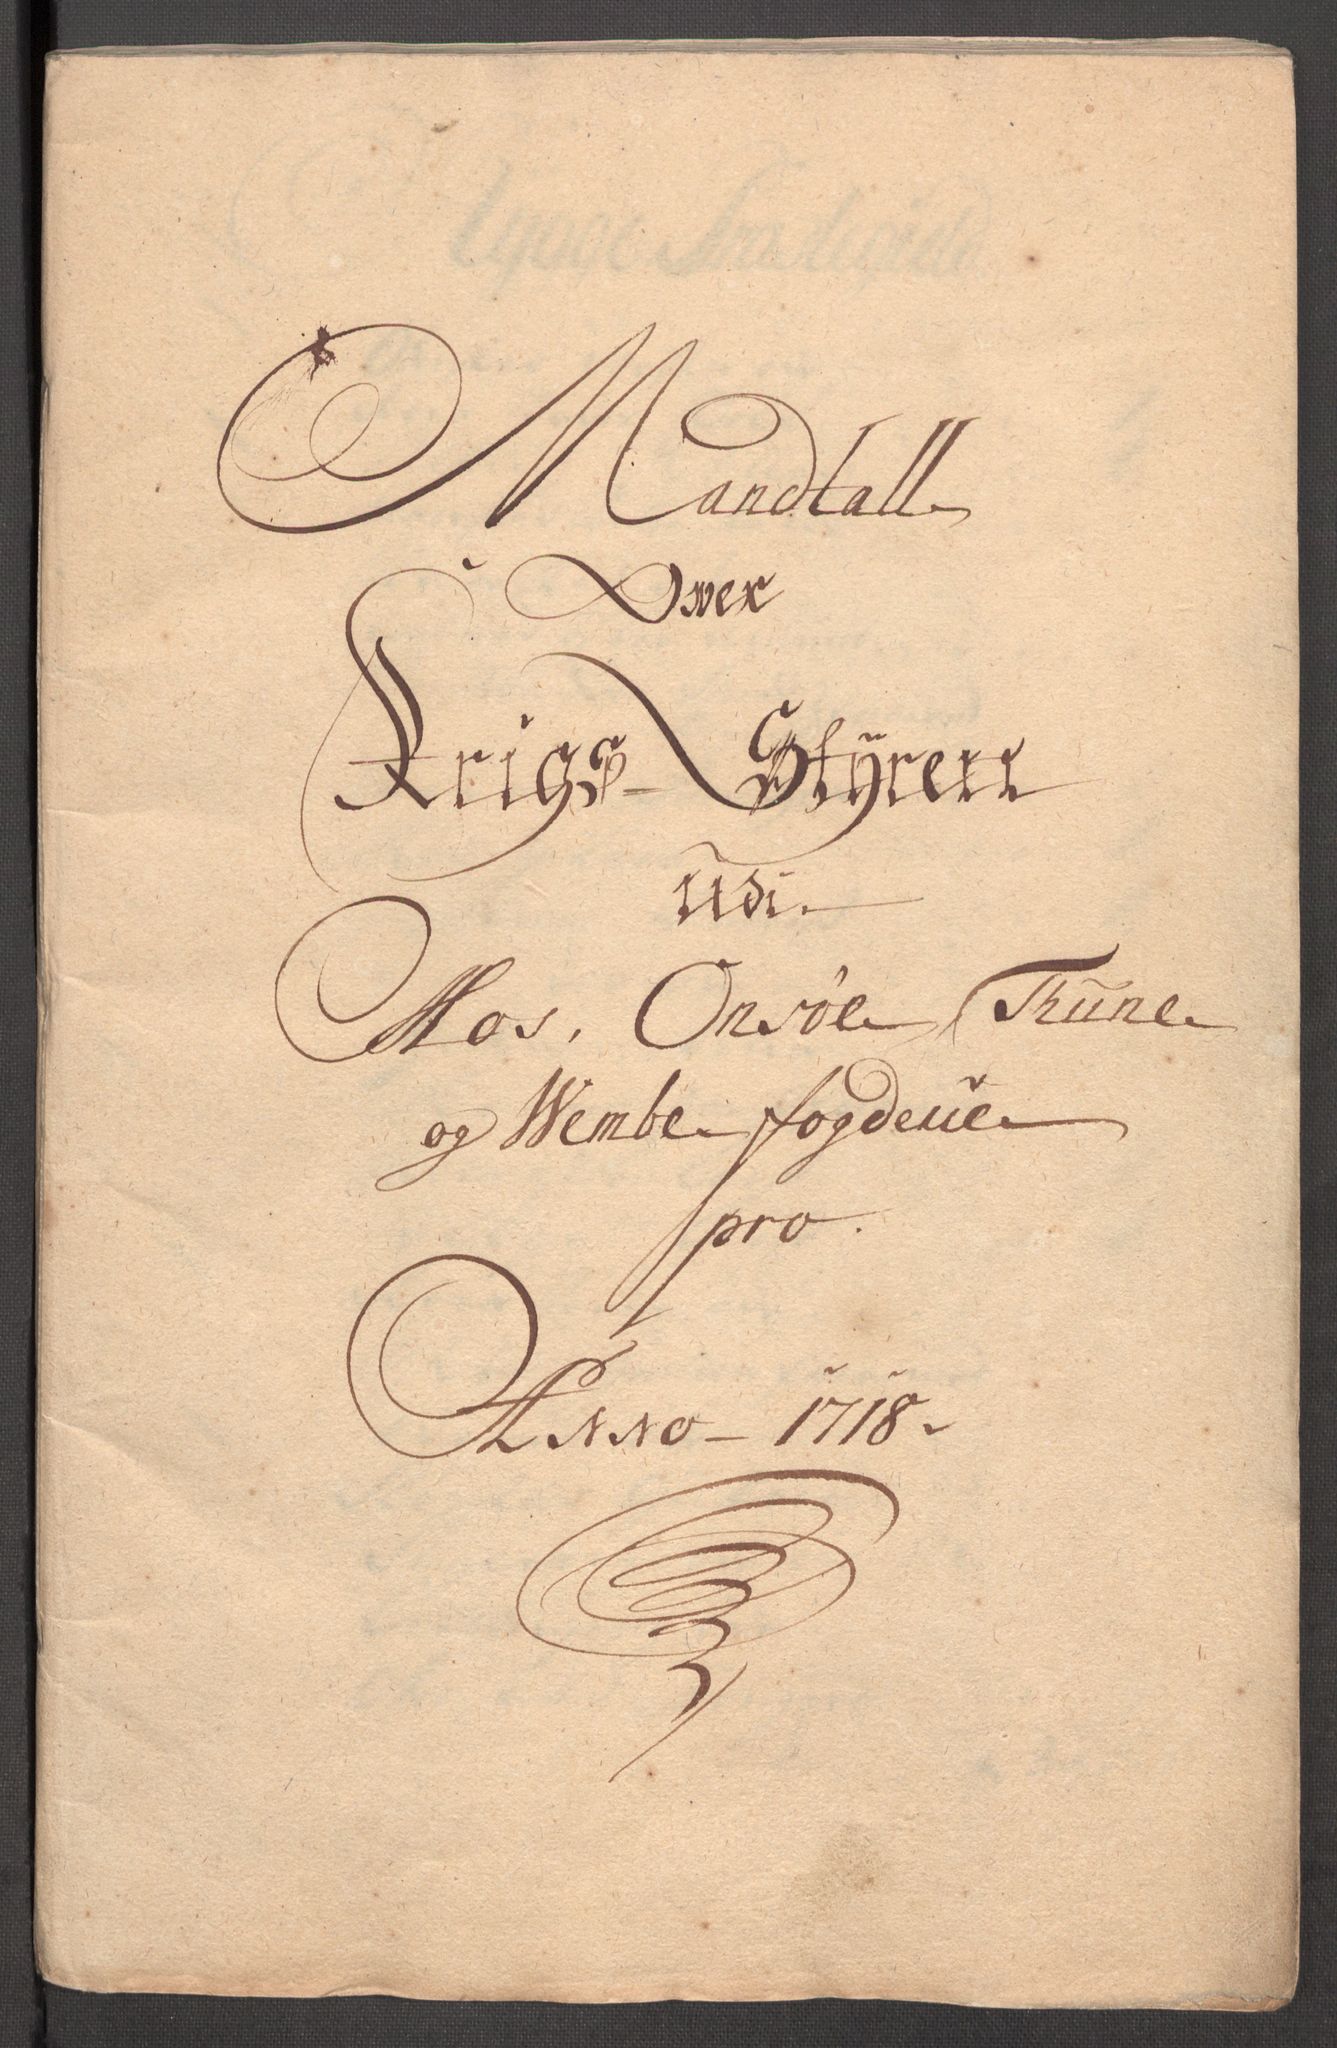 Mandtall
Over
Krigs-Styren
udi
Mos, Onsöe, Thune
og Wembe fogderie
pro.
Anno - 1718